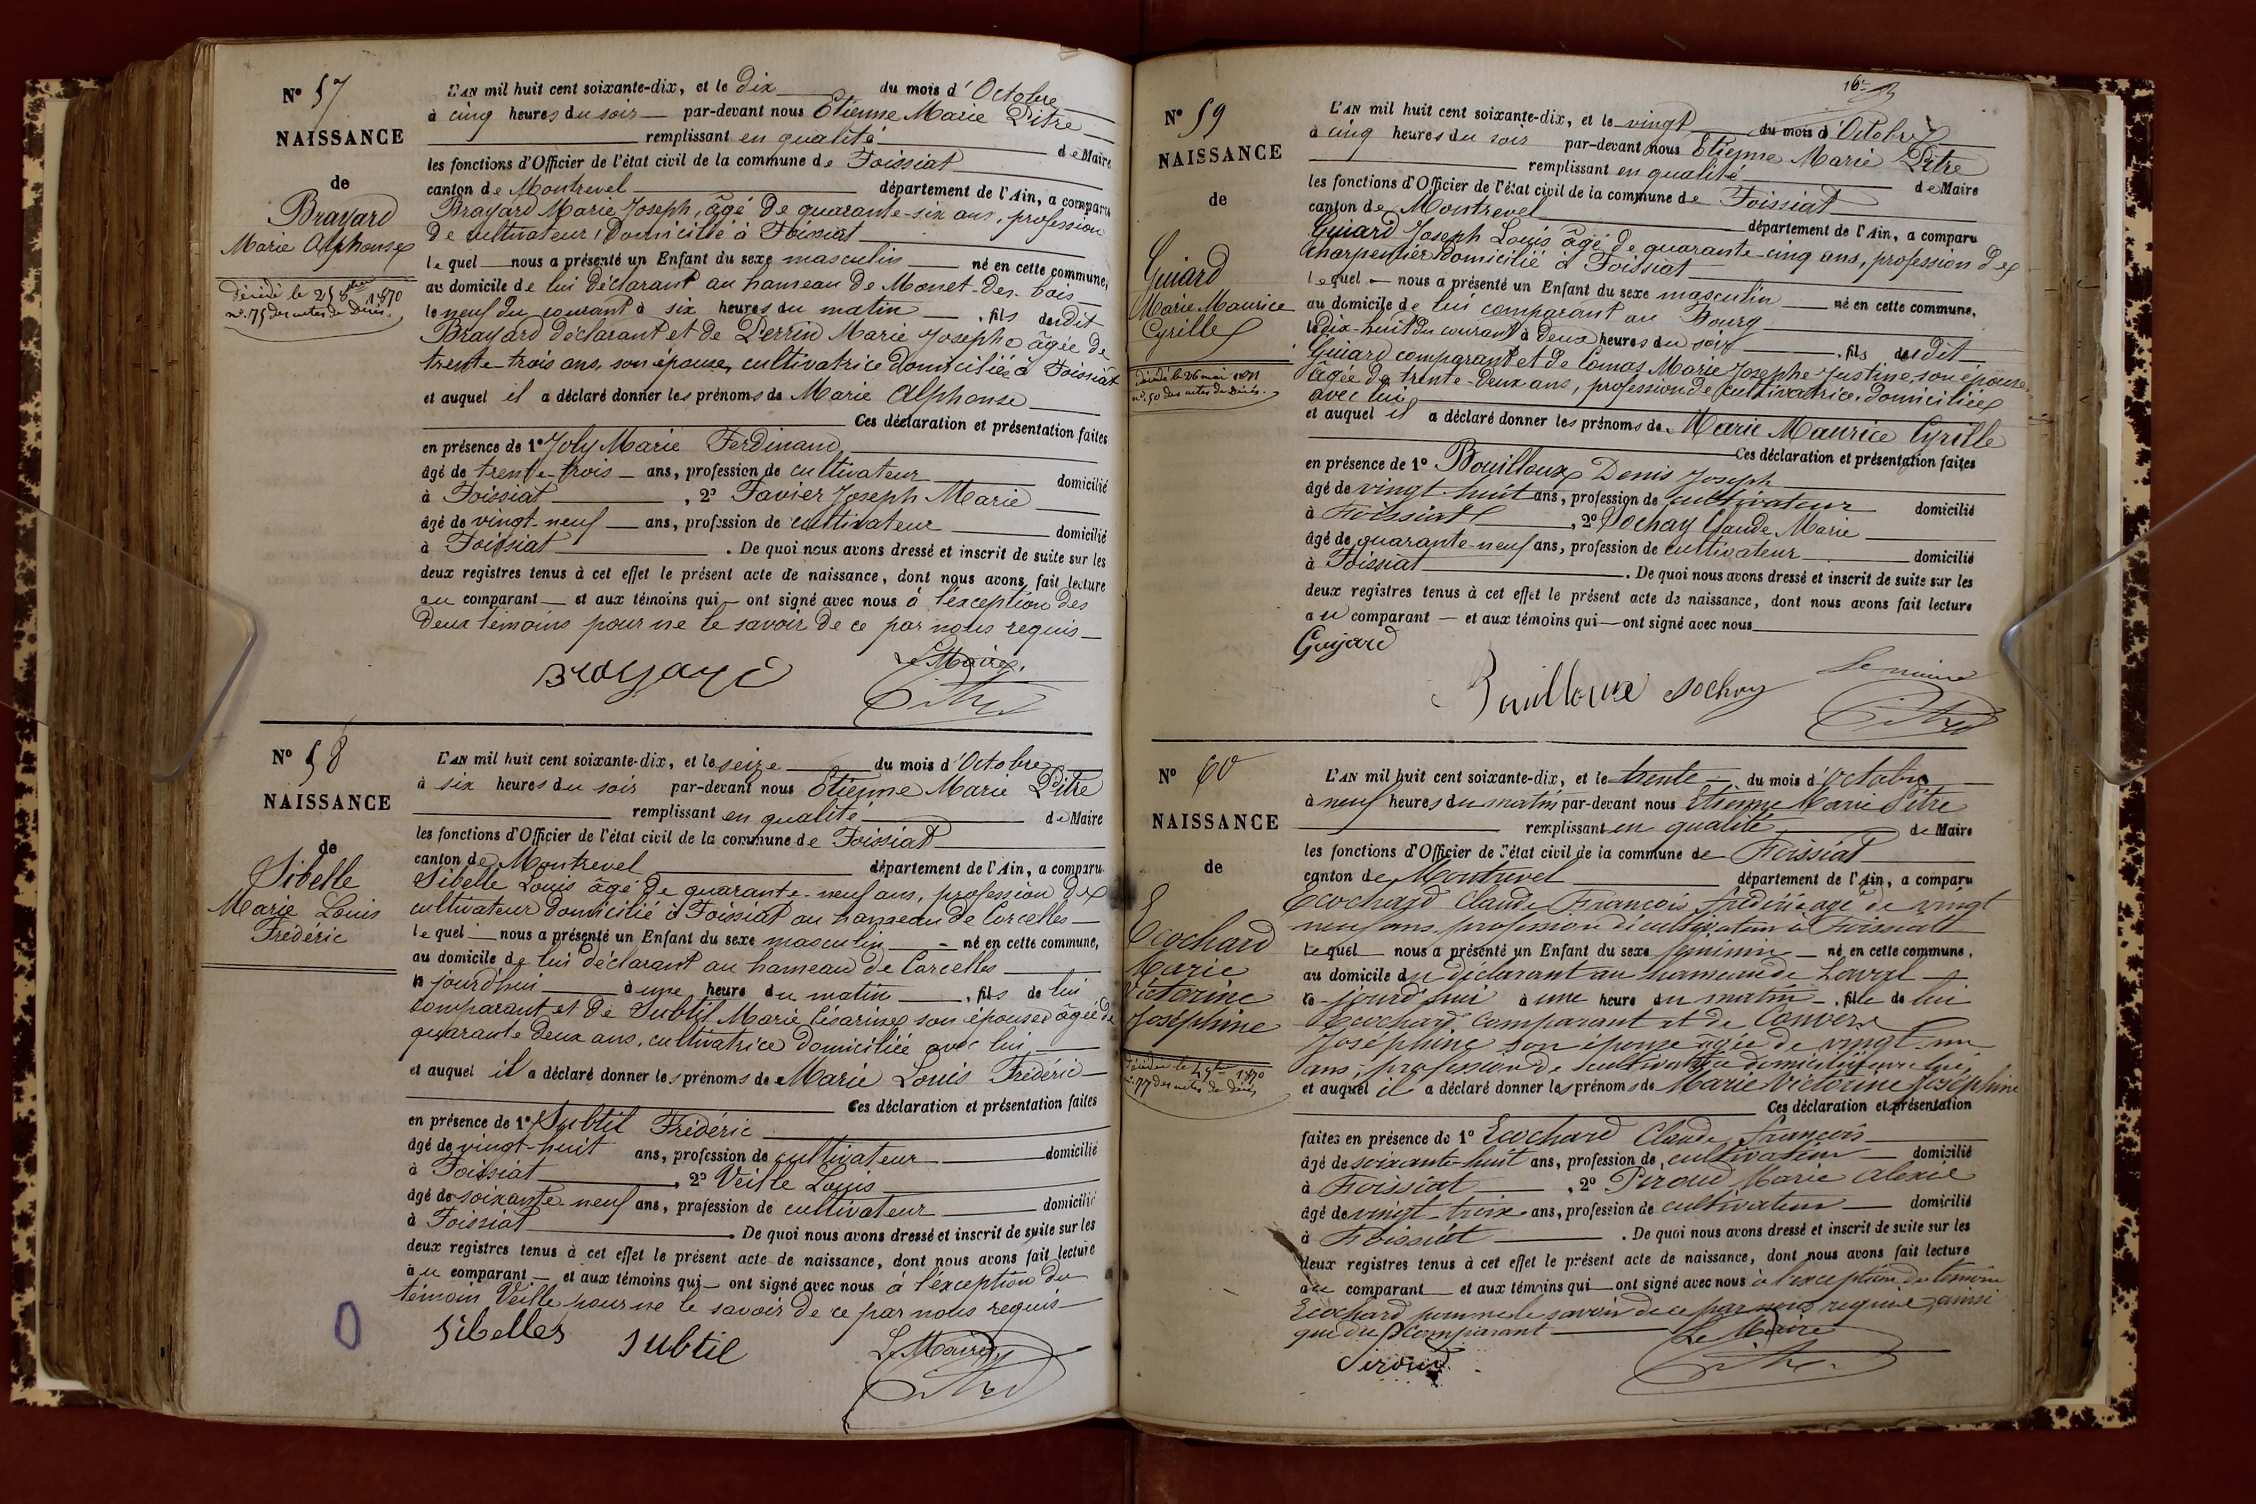 Nº 57
NAISSANCE
de
Brayard
Marie Alphonse
Décédé le 25 8bre 1870
nº 75 des actes de Décès.
L'AN mil huit cent soixante-dix, et le dix du mois d'Octobre
à cinq heures du soir par-devant nous Etienne Marie Pitre
remplissant en qualité de Maire
les fonctions d'Officier de l'état civil de la commune de Foissiat
canton de Montrevel département de l'Ain, a comparu
Brayard Marie Joseph, âgé de quarante-six ans, profession
de cultivateur, domicilié à Foissiat
lequel nous a présenté un Enfant du sexe masculin né en cette commune,
au domicile de lui déclarant au hameau de Monet-des-bois
le neuf du courant à six heures du matin, fils dudit
Brayard déclarant et de Perrin Marie Josephe âgée de
trente-trois ans, son épouse, cultivatrice domiciliée à Foissiat
et auquel il a déclaré donner les prénoms de Marie Alphonse
Ces déclaration et présentation faites
en présence de 1º Joly Marie Ferdinand,
âgé de trente-trois ans, profession de cultivateur domicilié
à Foissiat, 2º Favier Joseph Marie
âgé de vingt-neuf ans, profession de cultivateur domicilié
à Foissiat. De quoi nous avons dressé et inscrit de suite sur les
deux registres tenus à cet effet le présent acte de naissance, dont nous avons fait lecture
au comparant et aux témoins qui ont signé avec nous à l'exception des
deux témoins pour ne le savoir de ce par nous requis
Brayard
Le Maire,
Pitre
Nº 58
NAISSANCE
de
Sibelle
Marie Louis
Frédéric
L'AN mil huit cent soixante-dix, et le seize du mois d'Octobre
à six heures du soir par-devant nous Etienne Marie Pitre
remplissant en qualité de Maire
les fonctions d'Officier de l'état civil de la commune de Foissiat
canton de Montrevel département de l'Ain, a comparu
Sibelle Louis âgé de quarante-neuf ans, profession de
cultivateur domicilié à Foissiat au hameau de Corcelles
lequel nous a présenté un Enfant du sexe masculin né en cette commune,
au domicile de lui déclarant au hameau de Corcelles
ce jourd'hui à une heure du matin, fils de lui
comparant et de Subtil Marie Césarine son épouse âgée de
quarante deux ans, cultivatrice domiciliée avec lui
et auquel il a déclaré donner les prénoms de Marie Louis Frédéric
Ces déclaration et présentation faites
en présence de 1º Subtil Frédéric
âgé de vingt-huit ans, profession de cultivateur domicilié
à Foissiat, 2º Veille Louis
âgé de soixante neuf ans, profession de cultivateur domicilié
à Foissiat. De quoi nous avons dressé et inscrit de suite sur les
deux registres tenus à cet effet le présent acte de naissance, dont nous avons fait lecture
au comparant et aux témoins qui ont signé avec nous à l'exception du
témoin Veille pour ne le savoir de ce par nous requis
Sibelles Subtil
Le Maire
Pitre
Nº 59
NAISSANCE
de
Guiard
Marie Maurice
Cyrille
Décédé le 26 mai 1871
nº 50 des actes de Décès.
L'AN mil huit cent soixante-dix, et le vingt du mois d'Octobre
à cinq heures du soir par-devant nous Etienne Marie Pitre
remplissant en qualité de Maire
les fonctions d'Officier de l'état civil de la commune de Foissiat
canton de Montrevel département de l'Ain, a comparu
Guiard Joseph Louis âgé de quarante-cinq ans, profession de
charpentier domicilié à Foissiat
lequel nous a présenté un Enfant du sexe masculin né en cette commune,
au domicile de lui comparant au Bourg
le dix-huit du courant à deux heures du soir, fils dudit
Guiard comparant et de Comas Marie Josephe Justine, son épouse,
âgée de trente-deux ans, profession de cultivatrice, domiciliée
avec lui
et auquel il a déclaré donner les prénoms de Marie Maurice Cyrille
Ces déclaration et présentation faites
en présence de 1º Bouilloux Denis Joseph
âgé de vingt huit ans, profession de cultivateur domicilié
à Foissiat, 2º Sochay Claude Marie
âgé de quarante-neuf ans, profession de cultivateur domicilié
à Foissiat. De quoi nous avons dressé et inscrit de suite sur les
deux registres tenus à cet effet le présent acte de naissance, dont nous avons fait lecture
au comparant et aux témoins qui ont signé avec nous
Guyard
Bouilloux Sochay
Le maire
Pitre
Nº 60
NAISSANCE
de
Ecochard
Marie
Victorine
Joséphine
Décédée le 4 9bre 1870
nº 77 des actes de décès
L'AN mil huit cent soixante-dix, et le trente du mois d'Octobre
à neuf heures du matin par-devant nous Etienne Marie Pitre
remplissant en qualité de Maire
les fonctions d'Officier de l'état civil de la commune de Foissiat
canton de Montrevel département de l'Ain, a comparu
Ecochard Claude François Frédéric âgé de vingt
neuf ans profession de cultivateur à Foissiat
lequel nous a présenté un Enfant du sexe féminin né en cette commune,
au domicile du déclarant au hameau de
ce jourd'hui à une heure du matin, fille de lui
Ecochard comparant et de Convers
Joséphine son épouse agée de vingt un
ans, profession de cultivatrice domiciliée avec lui,
et auquel il a déclaré donner les prénoms de Marie Victorine Joséphine
Ces déclaration et présentation
faites en présence de 1º Ecochard Claude François
âgé de soixante huit ans, profession de cultivateur domicilié
à Foissiat, 2º Piroud Marie Alexis
âgé de vingt-trois ans, profession de cultivateur domicilié
à Foissiat. De quoi nous avons dressé et inscrit de suite sur les
deux registres tenus à cet effet le présent acte de naissance, dont nous avons fait lecture
au comparant et aux témoins qui ont signé avec nous à l'exception du témoin
Ecochard pour ne le savoir de ce par nous requis, ainsi
que du comparant
Piroud
Le Maire
Pitre